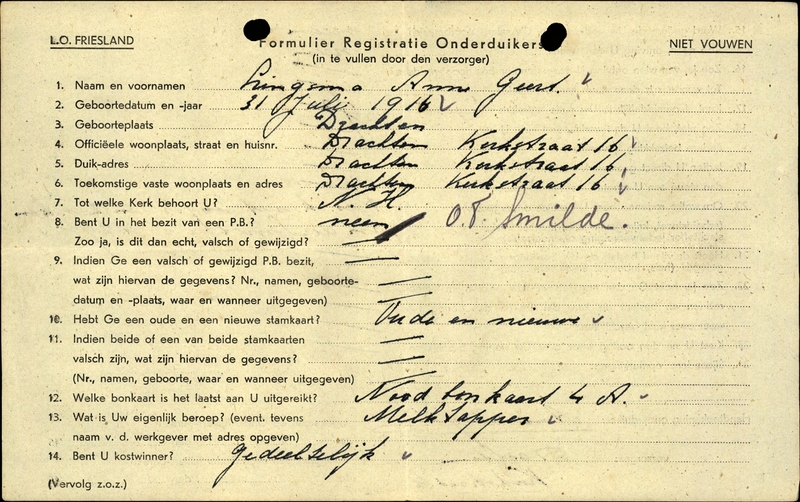 L.O. FRIESLAND Formulier Registratie Onderduikers NIET VOUWEN
(in te vullen door den verzorger)
1. Naam en voornamen Lingsma Anne Geert.
2. Geboortedatum en -jaar 31 Juli 1916
3. Geboorteplaats Drachten
4. Officiëele woonplaats, straat en huisnr. Drachten Kerkstraat 16
5. Duik-adres Drachten Kerkstraat 16
6. Toekomstige vaste woonplaats en adres Drachten Kerkstraat 16
7. Tot welke Kerk behoort U? N.H.
8. Bent U in het bezit van een P.B.? neen O.T. Smilde.
Zoo ja, is dit dan echt, valsch of gewijzigd? —
9. Indien Ge een valsch of gewijzigd P.B. bezit, —
wat zijn hiervan de gegevens? Nr., namen, geboorte- —
datum en -plaats, waar en wanneer uitgegeven) —
10. Hebt Ge een oude en een nieuwe stamkaart? Oude en nieuwe
11. Indien beide of een van beide stamkaarten —
valsch zijn, wat zijn hiervan de gegevens? —
(Nr., namen, geboorte, waar en wanneer uitgegeven) —
12. Welke bonkaart is het laatst aan U uitgereikt? Nood bonkaart 4 A.
13. Wat is Uw eigenlijk beroep? (event. tevens Melktapper
naam v. d. werkgever met adres opgeven)
14. Bent U kostwinner? Gedeeltelijk
(Vervolg z.o.z.)